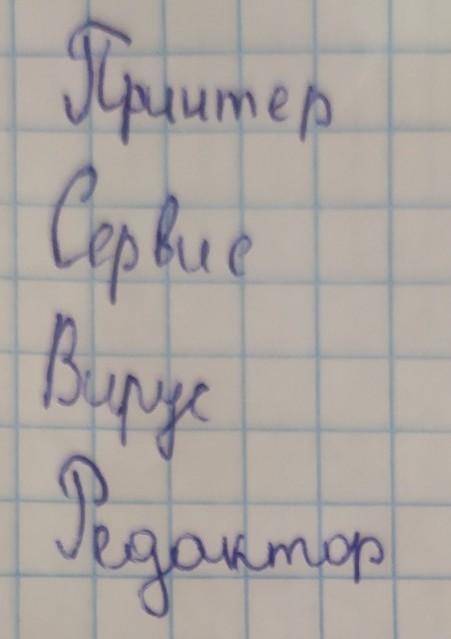 Принтер
Сервис
Вирус
Редактор